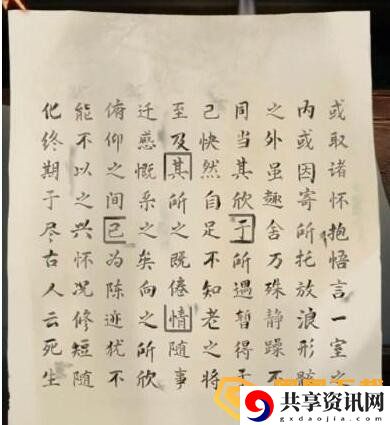 或取诸怀抱悟言一室之
内或因寄所托放浪形骸
之外虽趣舍万殊静躁不
同当其欣于所遇暂得于
己快然自足不知老之将
至及其所之既倦情随事
迁感慨系之矣向之所欣
俯仰之间已为陈迹犹不
能不以之兴怀况修短随
化终期于尽古人云死生
共享资讯网
www.gxdaoji.com